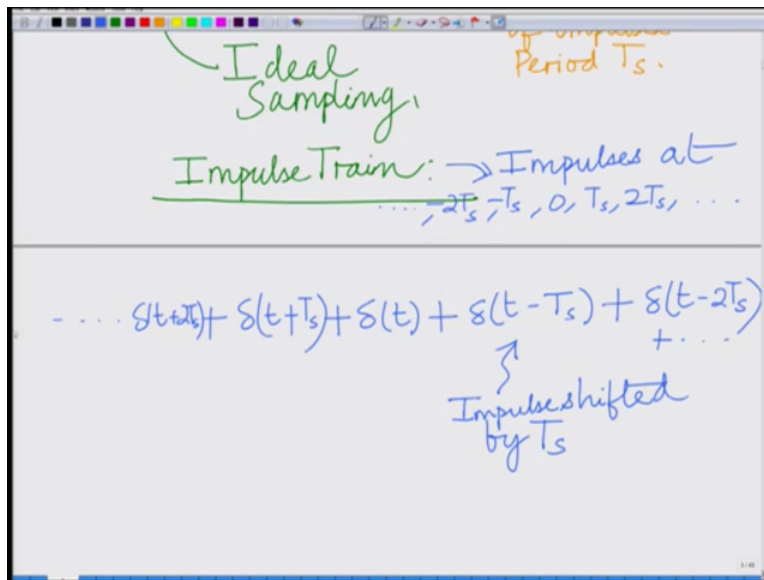 Ideal
Sampling,
of impulses
Period Ts.
Impulse Train: → Impulses at
...., -2Ts, -Ts, 0, Ts, 2Ts, ....
.... δ(t+2Ts) + δ(t+Ts) + δ(t) + δ(t-Ts) + δ(t-2Ts)
+ ....
Impulse shifted
by Ts